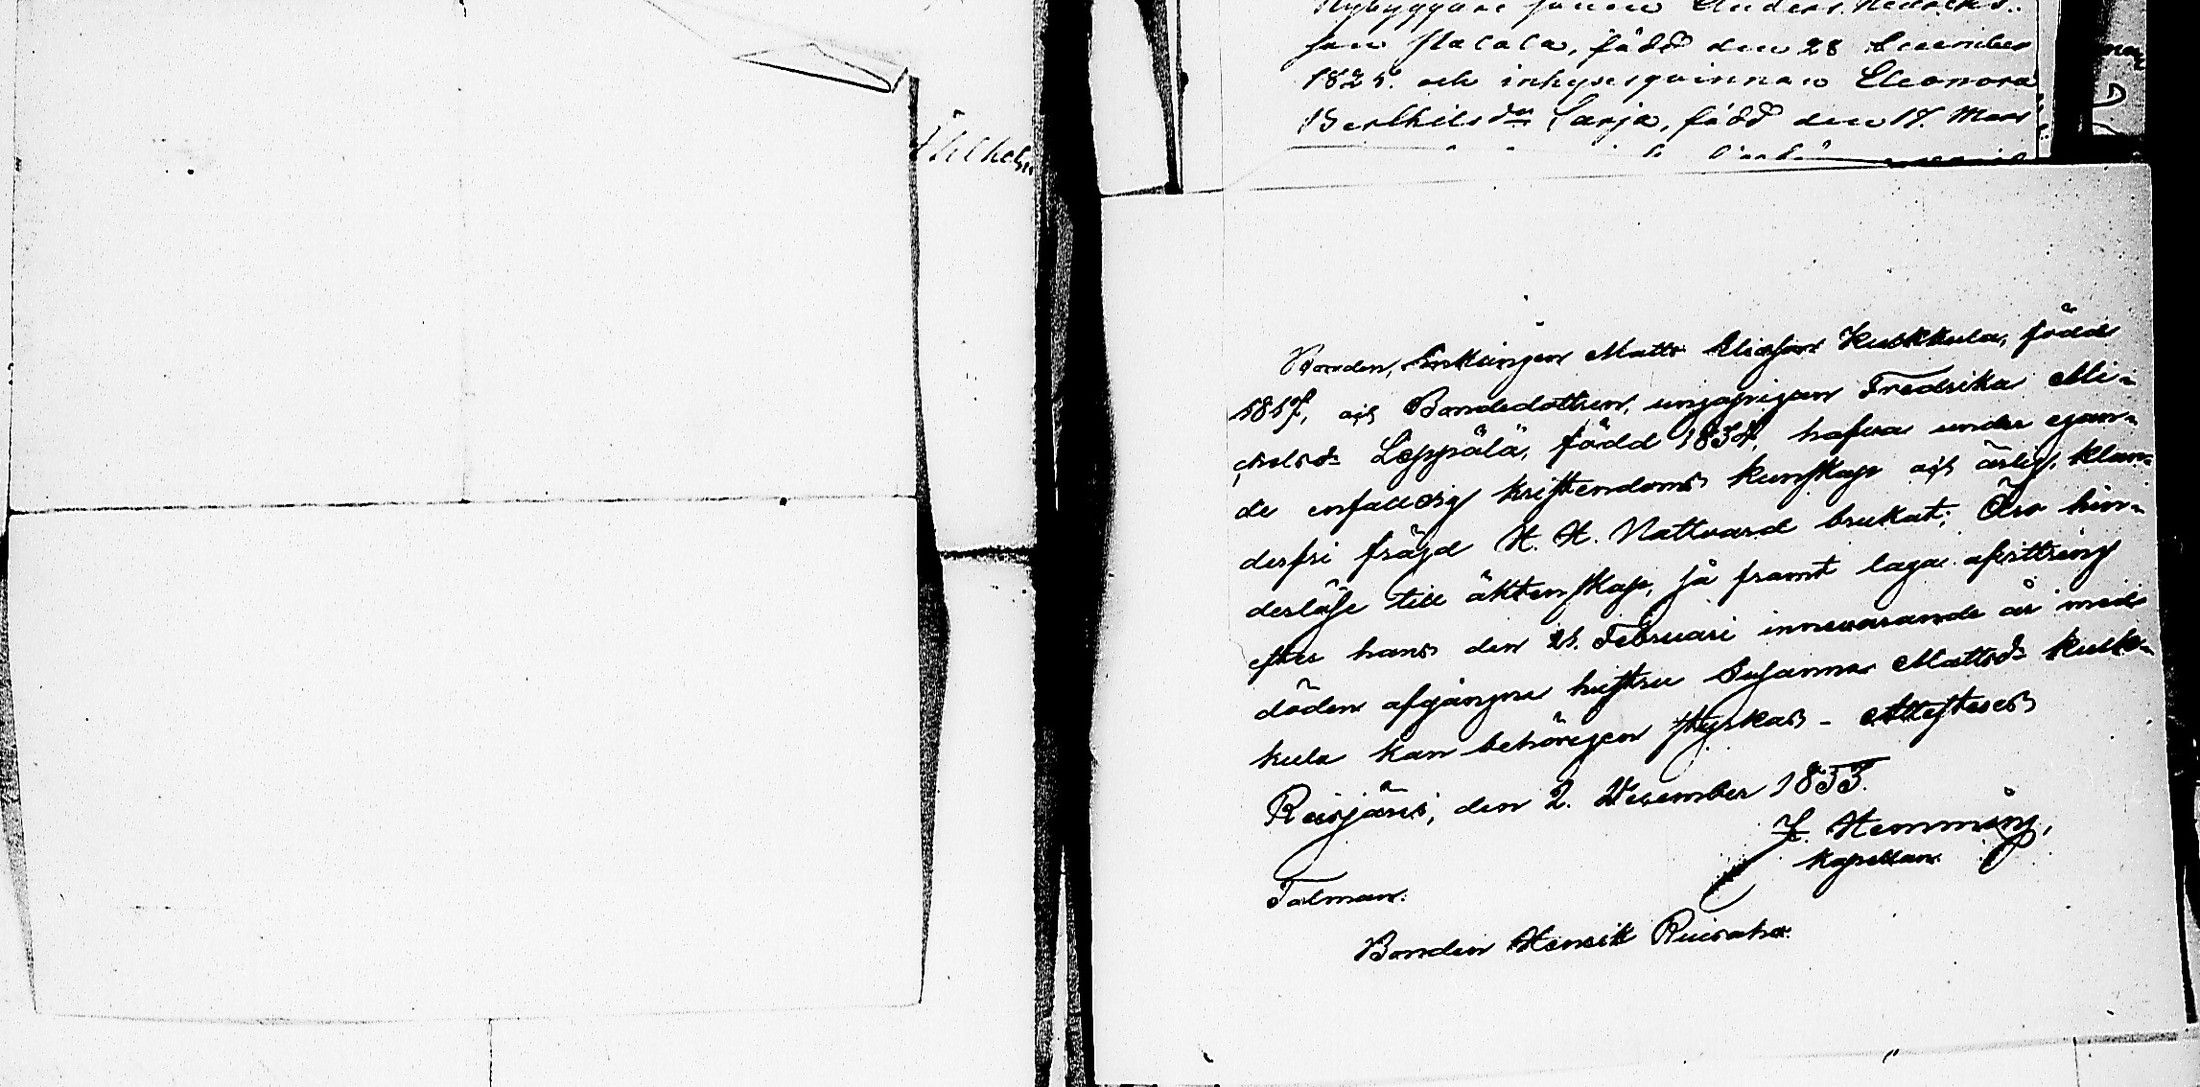 son Hacala, född den 28 December
1825. och inhysesqvinnan Eleonora
Berthilsdr Sarja, född den 17. Mars
Bonden, Enklingen Matts Eliasson Kukkula, född
1817, och Bondedottren, ungapigan Fredrika Mi-
chelsdr Leppälä, född 1834, hafva under egan-
de enfaldig kristendoms kunskap och ärlig, klan-
derfri frägd H. H. Nattvard brukat; Äro hin-
derlöse till äktenskap, så framt laga afvittring
efter hans den 21. Februari innevarande år med
döden afgångna hustru Susanna Mattsdr Kukk-
kula kan behörigen styrkas - Attesteres
Reisjärvi, den 2. December 1853.
J. Hemming,
Kapellan
Talman.
Bonden Henrik Ruisaho.